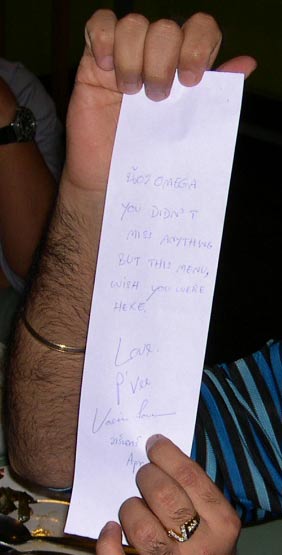 น้อง OMEGA
YOU DIDN'T
MISS ANYTHING
BUT THIS MENU,
WISH YOU WERE
HERE.
Love.
P'Vee